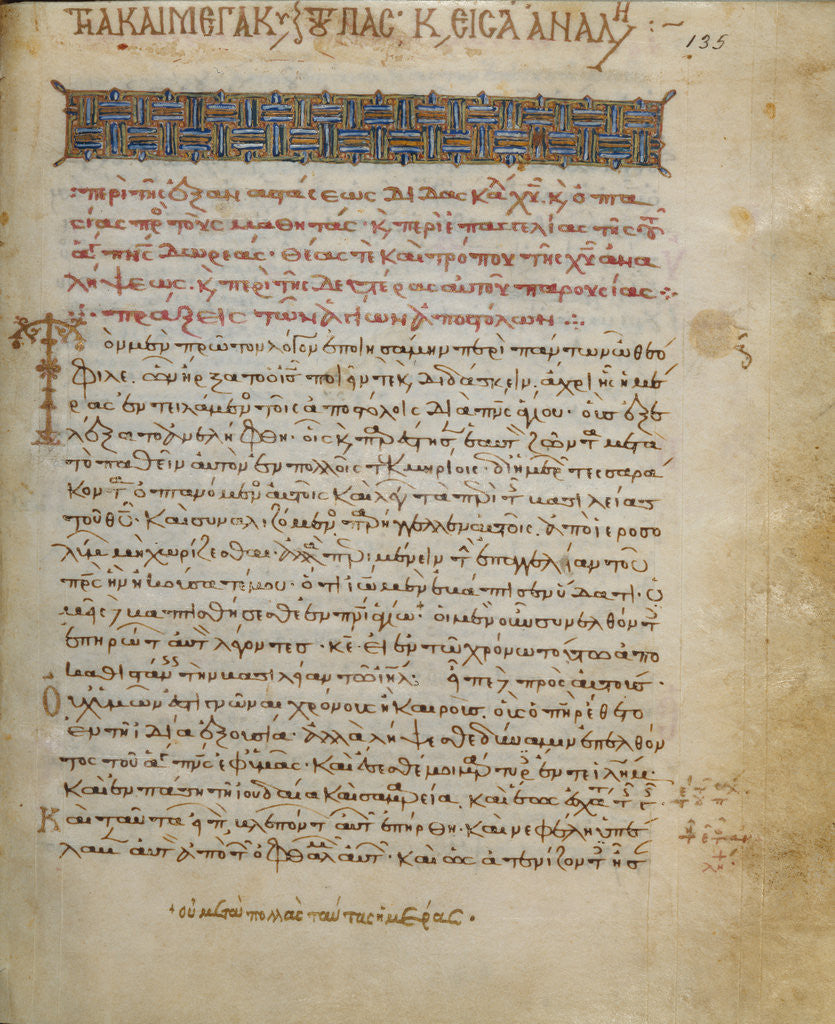 Τῆ ἁ καὶ μεγά κυ τοῦ πάσ· κ, εἰς τ ἀναλη :~
135
:περὶ τῆς ἐξ ἀναστάσεως διδασκαλ χυ κ, ὀπτα
σίας πρ τοὺς μαθητάς· κ, περὶ ἐπαγγελίας τῆς τοῦ
ἁγ πνς δωρεάς· θέας τὲ καὶ τρόπου τῆς χυ ἀνα
λήψεως. κ, περὶ τῆς δευτέρας αὐτοῦ παρουσίας
πράξεις τῶν ἁγίων ἀποστόλων
Τὸν μὲν πρῶτον λόγον ἐποιησάμην περὶ πάντων ὦ θεό
φιλε. ὧν ἤρξατο ὁ ις ποιεῖν τὲ κ, διδάσκειν. ἄχρι ἧς ἡμέ
ρας ἐντειλάμεν τοῖς ἀποστόλοις διὰ πνς ἁγίου· οὓς ἐξε
λέξατο ἀνελήφθη· οἷς κ, παρέστησ ἑαυτ ζῶντα μετὰ
τὸ παθεῖν αὐτὸν ἐν πολλοῖς τεκμηρίοις· δι ἡμερ τεσσαρά
κοντα ὀπτανόμεν αὐτοῖς καὶ λέγ τὰ περὶ τ βασιλείας
τοῦ θυ· καὶ συναλιζόμεν παρήγγελλεν αὐτοῖς. ἀπὸ ἱεροσο
λύμ μὴ χωρίζεσθαι· ἀλλὰ περιμένειν τ ἐπαγγελίαν τοῦ
πρς ἣν ἠκούσατέ μου· ὅτι ἰω μὲν ἐβάπτισεν ὕδατι· ὑ
μεῖς δὲ βαπτισθήσεσθε ἐν πνι ἁγίω· οἱ μὲν οὖν συνελθόντ
ἐπηρώτ αὐτ λέγοντες· κε· εἰ ἐν τῶ χρόνω τούτω ἀπο
καθιστάνεις τὴν βασιλείαν τῶ ιηλ· εἶπε δὲ πρὸς αὐτούς·
Οὐχ ὑμῶν ἐστι γνῶναι χρόνους ἢ καιροὺς. οὓς ὁ πηρ ἔθετο
ἐν τῆ ἰδία ἐξουσία· ἀλλὰ λήψεσθε δύναμιν ἐπελθόν
τος τοῦ ἁγ πνς ἐφ ὑμᾶς· καὶ ἔσεσθέ μοι μάρτυρ ἔν τε ιλημ·
καὶ ἐν πάση τῆ ἰουδαία καὶ σαμαρεία. καὶ ἕως ἐσχάτ τ γ·
Καὶ ταῦτα εἰπ βλεπόντ αὐτ ἐπήρθη· καὶ νεφέλη ὑπέ
λαβ αὐτ ἀπὸ τ ὀφθαλμ αὐτ· καὶ ὡς ἀτενίζοντ ἦσ
+ οὐ μετὰ πολλὰς ταύτας ἡμέρας·